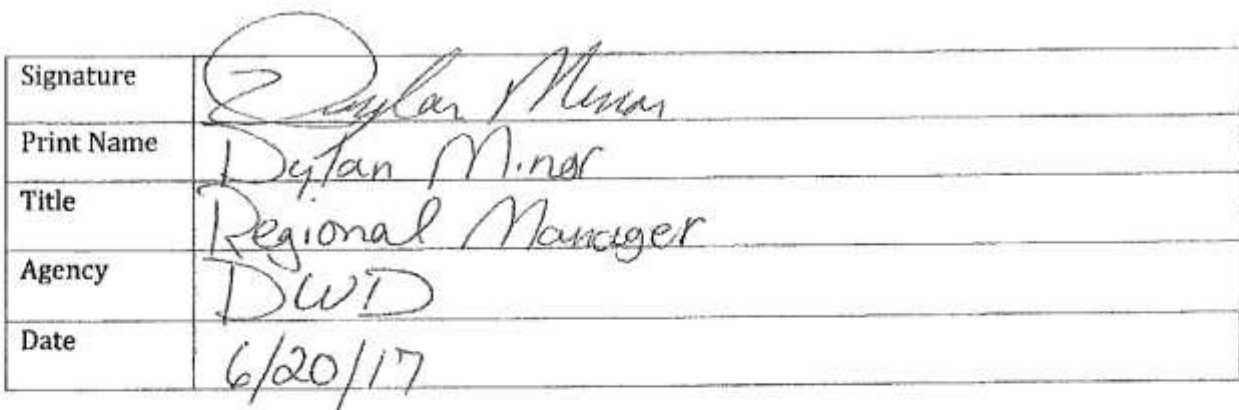 Signature Dylan Minor
Print Name Dylan Minor
Title Regional Manager
Agency DWD
Date 6/20/17